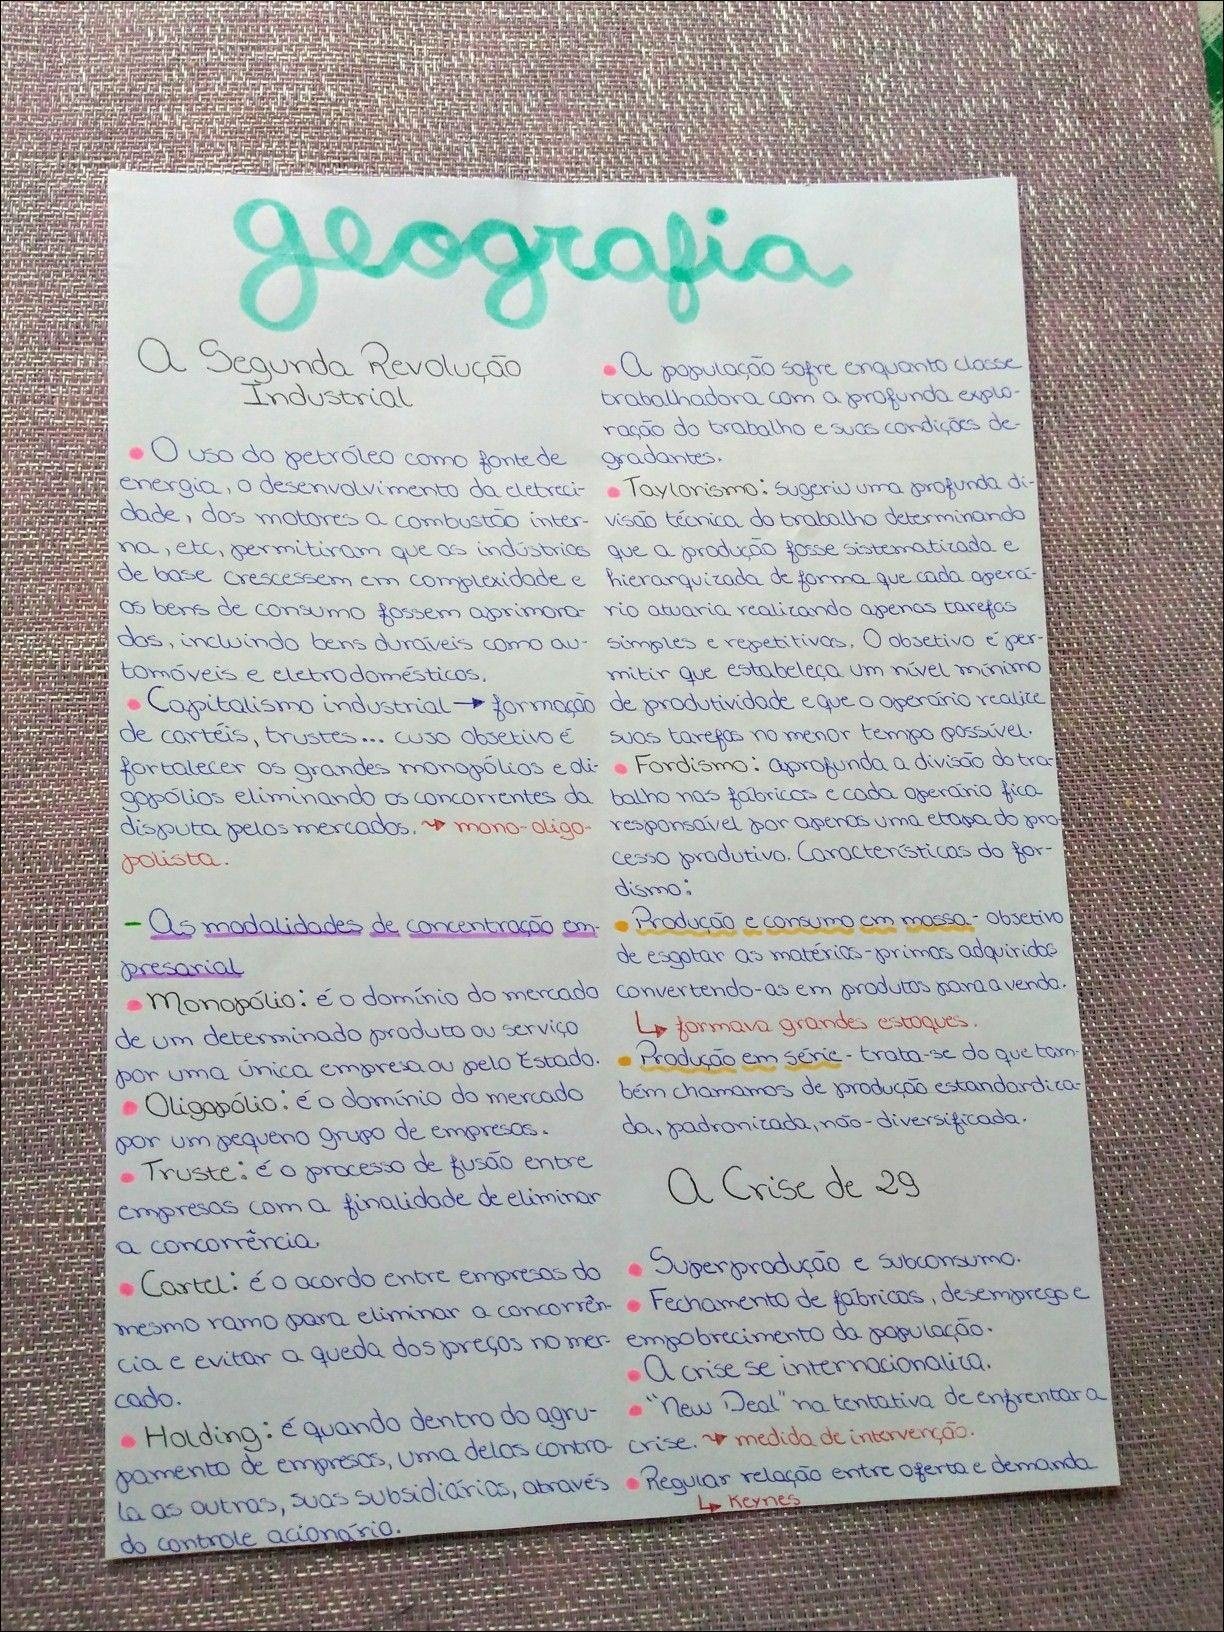 geografia
A Segunda Revolução
Industrial
• O uso do petróleo como fonte de
energia, o desenvolvimento da eletreci-
dade, dos motores a combustão inter-
na, etc, permitiram que as indústrias
de base crescessem em complexidade e
os bens de consumo fossem aprimora-
dos, incluindo bens duráveis como au-
tomóveis e eletrodomésticos.
• Capitalismo industrial → formação
de cartéis, trustes... cuso obsetivo é
fortalecer os grandes monopólios e oli-
gopólios eliminando os concorrentes da
disputa pelos mercados. ↝ mono-oligo-
polista.
- As modalidades de concentração em-
presarial
• Monopólio: é o domínio do mercado
de um determinado produto ou serviço
por uma única empresa ou pelo Estado.
• Oligopólio: é o domínio do mercado
por um pequeno grupo de empresas.
• Truste: é o processo de fusão entre
empresas com a finalidade de eliminar
a concorrência.
• Cartel: é o acordo entre empresas do
mesmo ramo para eliminar a concorrên-
cia e evitar a queda dos preços no mer-
cado.
• Holding: é quando dentro do agru-
pamento de empresas, uma delas contro-
la as outras, suas subsidiárias, através
do controle acionário.
• A população sofre enquanto classe
trabalhadora com a profunda explo-
ração do trabalho e suas condições de-
gradantes.
• Taylorismo: sugeriu uma profunda di-
visão técnica do trabalho determinando
que a produção fosse sistematizada e
hierarquizada de forma que cada operá-
rio atuaria realizando apenas tarefas
simples e repetitivas. O obsetivo é per-
mitir que estabeleça um nível mínimo
de produtividade e que o operário realize
suas tarefas no menor tempo possível.
• Fordismo: aprofunda a divisão do tra-
balho nas fábricas e cada operário fica
responsável por apenas uma etapa do pro-
cesso produtivo. Características do for-
dismo:
• Produção e consumo em massa - obsetivo
de esgotar as matérias-primas adquiridas
convertendo-as em produtos para a venda.
↳ formava grandes estoques.
• Produção em série - trata-se do que tam-
bém chamamos de produção estandardiza-
da, padronizada, não-diversificada.
A Crise de 29
• Superprodução e subconsumo.
• Fechamento de fábricas, desemprego e
empobrecimento da população.
• A crise se internacionaliza.
• "New Deal" na tentativa de enfrentar a
crise. ↝ medida de intervenção.
• Regular relação entre oferta e demanda
↳ Keynes